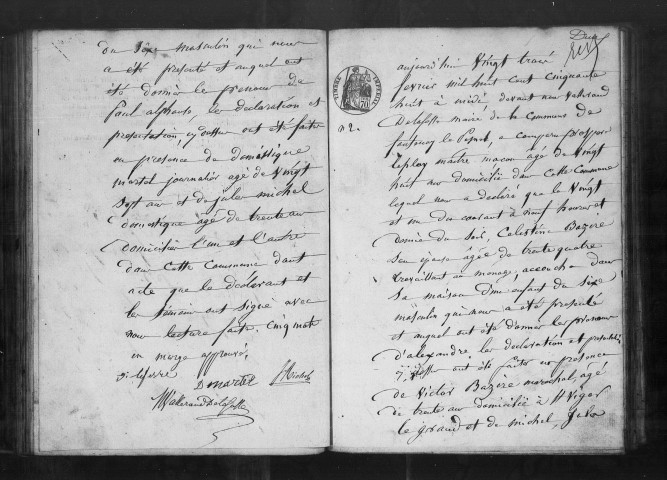 du sixe masculin qui nous
a été presenté et auquel ont
été donner le prenom de
Paul alphonse, les declaration et
presentation cy dessus ont été faite
en presence de domestique
martel journalier agé de vingt
sept ans et de jules michel
domestique agé de trente ans
domicilier l'un et l'autre
dans cette Commune dont
acte que le déclarant et
les temoins ont signé avec
nous lecture faite, cinq mots
en marge approuvé
D martel Michel
Deux
N 2.
aujourd'hui vingt trois
fevrier mil huit cent cinquante
huit à midi, devant nous Vallerand
Delafosse maire de la Commune de
fontenay le Pesnel, a comparu prosper
leplay maitre macon agé de vingt
huit ans domicilié dans cette Commune
lequel nous a declaré que le vingt
et un du courant à neuf heures et
demie du soir, Celestine Bazire
son epouse agée de trente quatre
travaillant au menage, accoucha dans
sa maison d'un enfant du sixe
masculin qui nous a été presenté
et auquel ont été donner les prenoms
d'alexandre les declaration et presentation
cy dessus ont été faites en presence
de Victor Bazire marechal, agé
de trente ans domicilié à St Vigor
le grand et de michel,